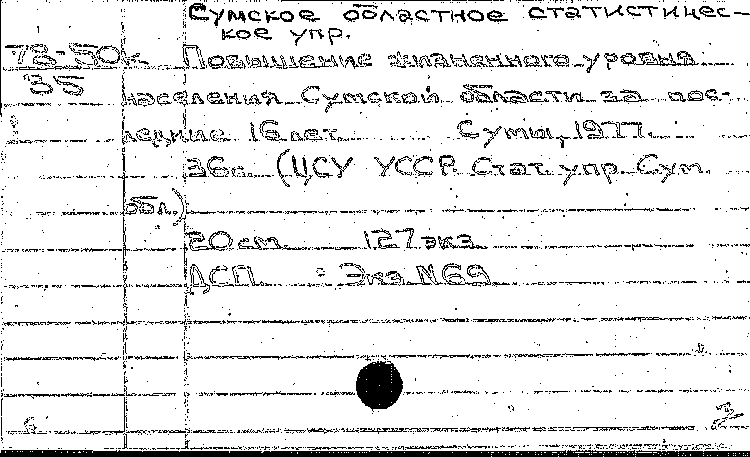 Сумское областное статистичес-
кое упр.
78-50к Повышение жизненного уровня
35
населения Сумской области за пос-
ледние 16 лет. Сумы, 1977.
36с. (ЦСУ УССР. Стат. упр. Сум.
обл.)
20 см. 127 экз.
ДСП. Экз. N69